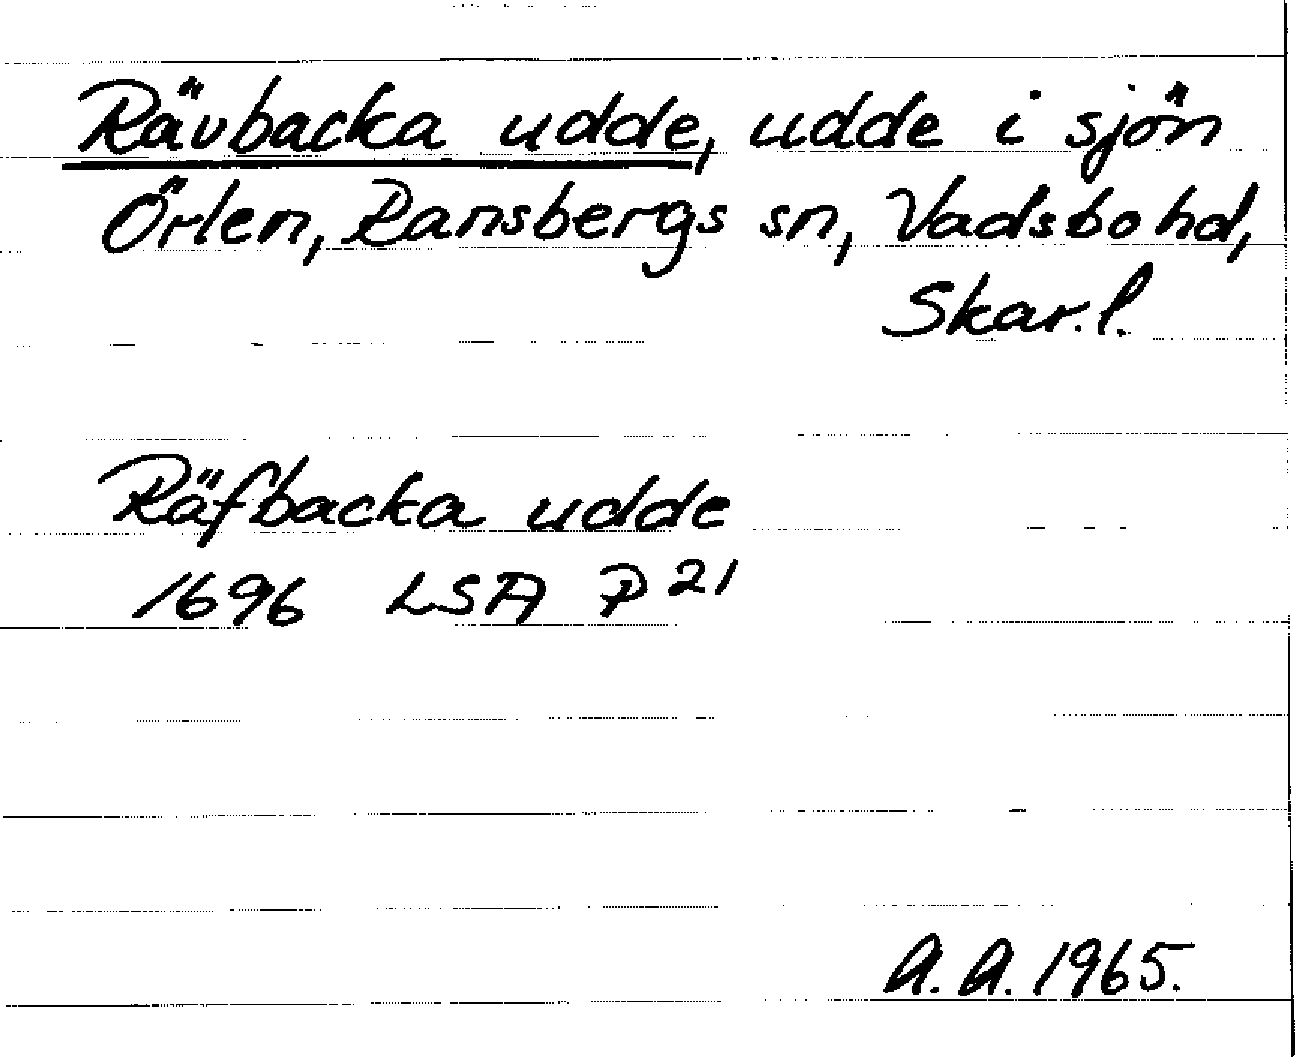 Rävbacka udde, udde i sjön
Örlen, Ransbergs sn, Vadsbo hd,
Skar.l.
Räfbacka udde
1696 LSA P 21
A.A. 1965.